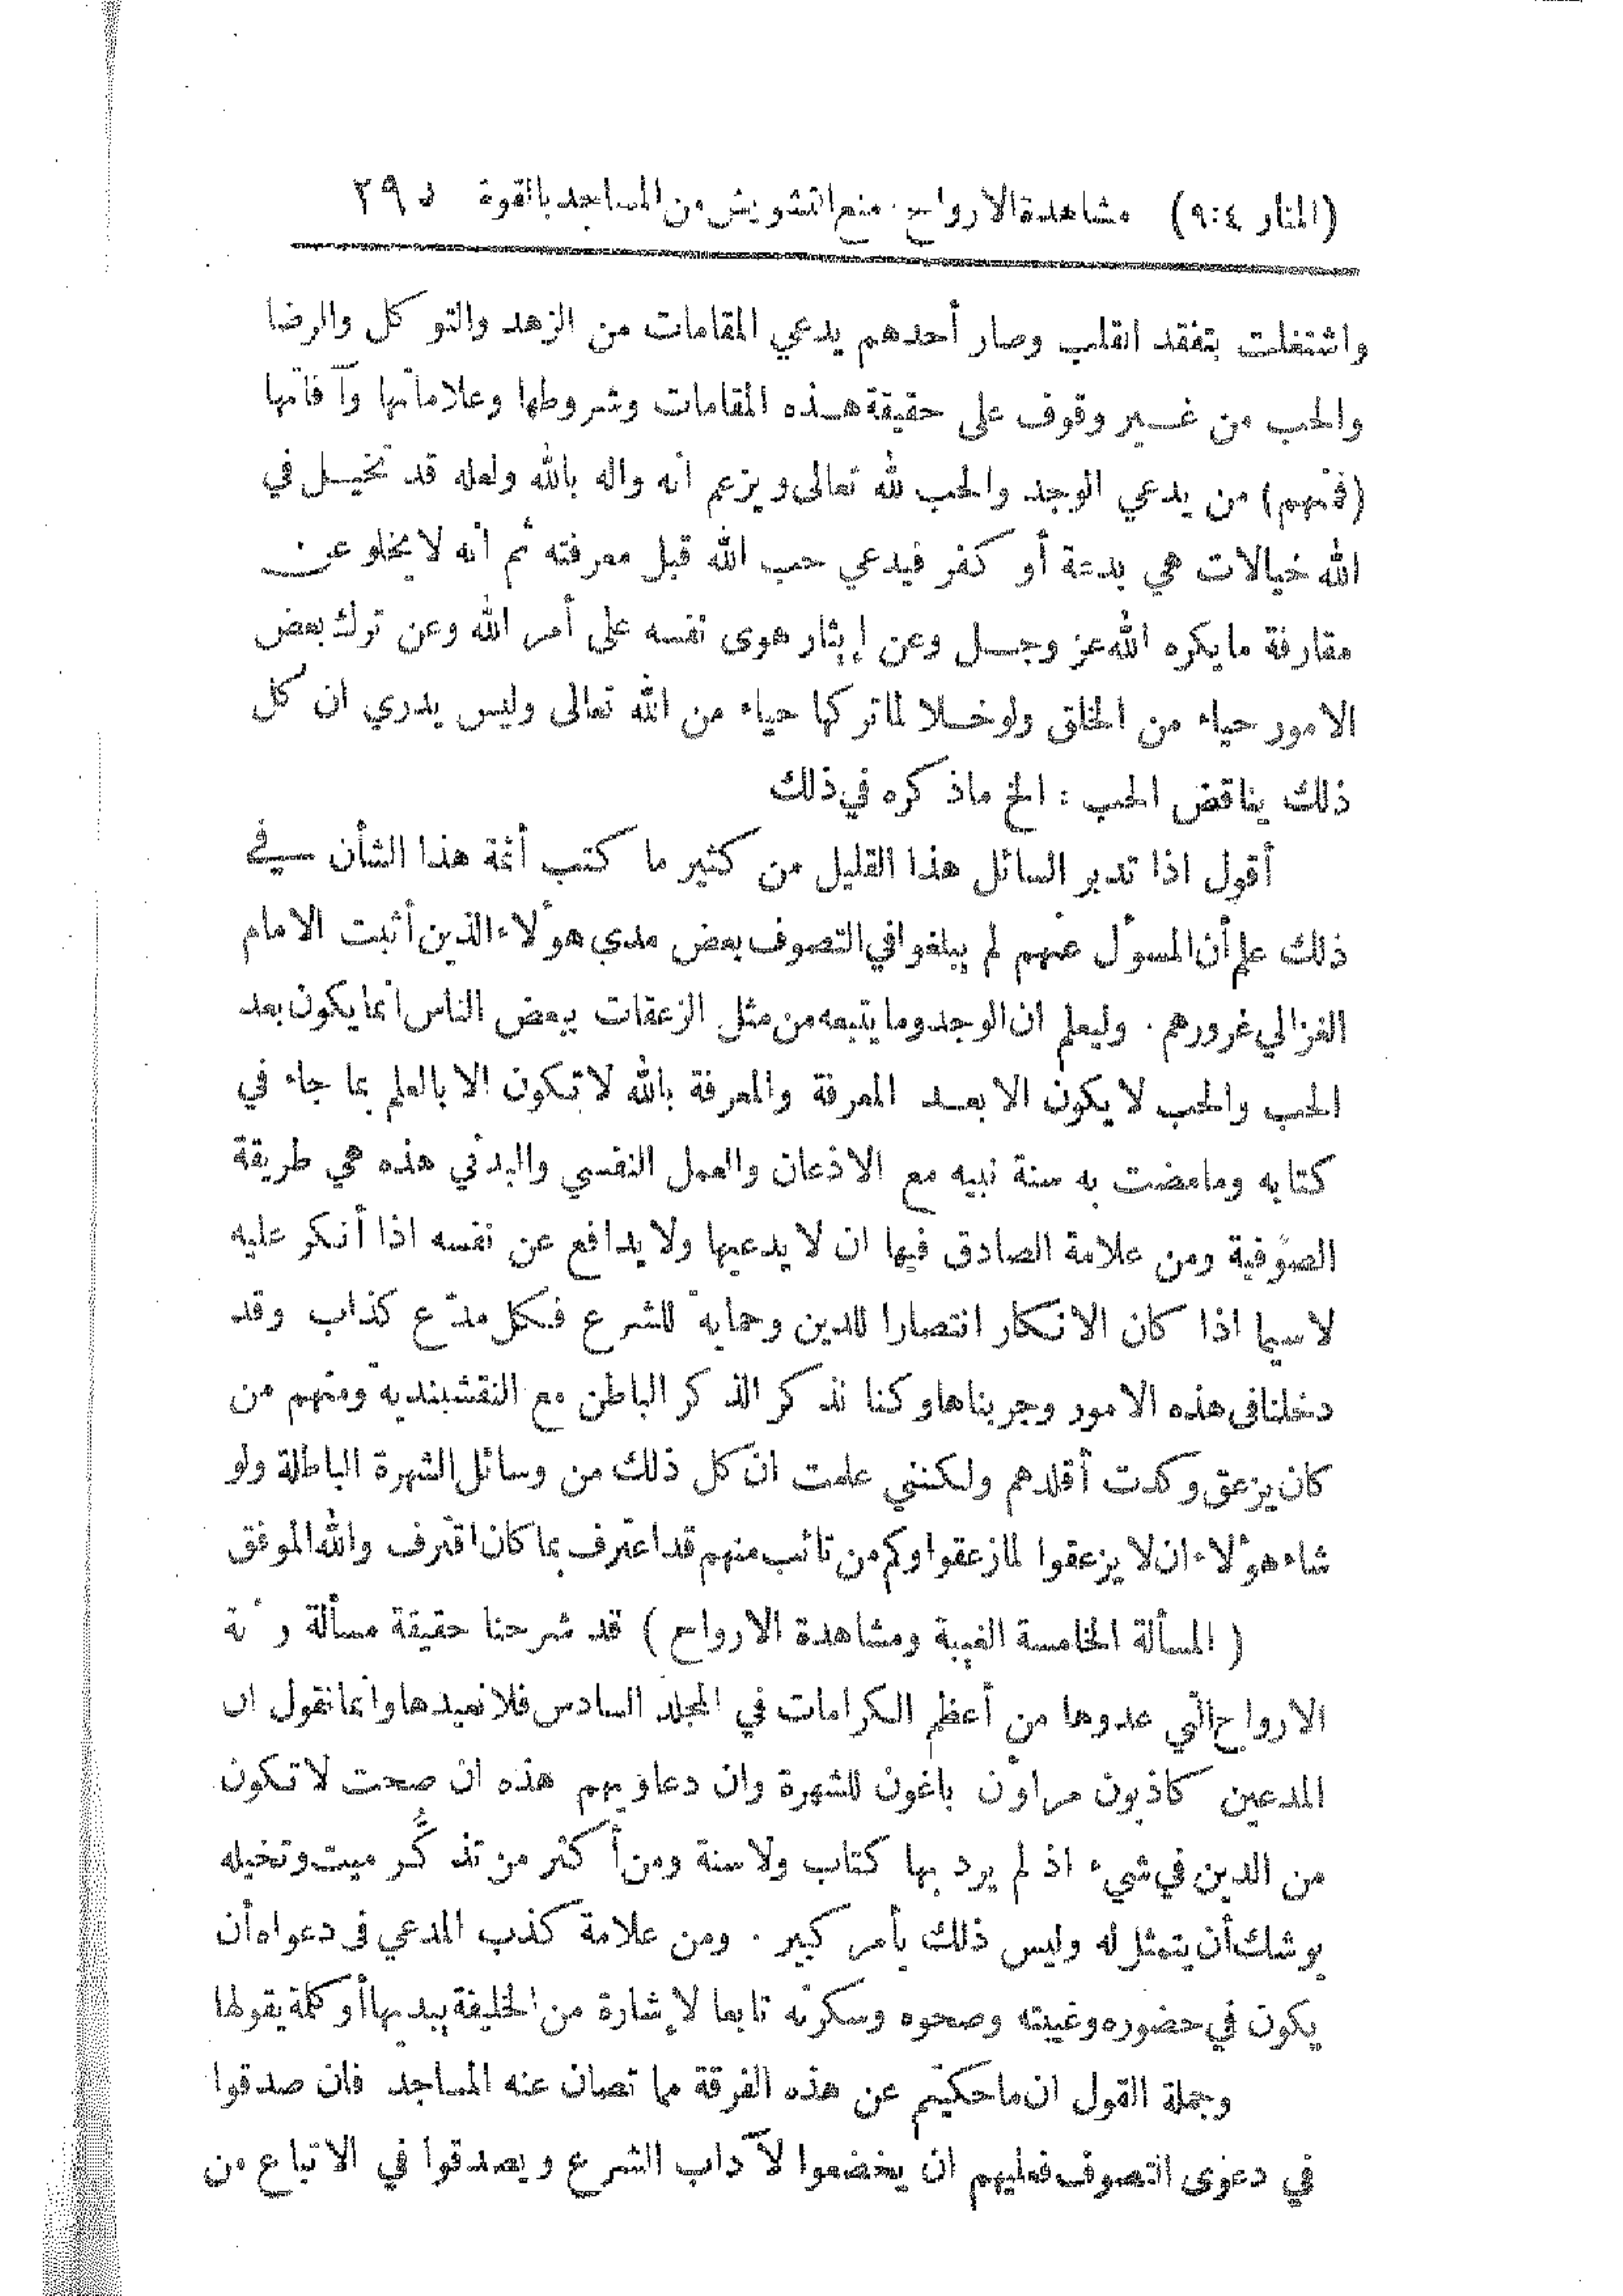 (المنار ٤:٩) مشاهدة الارواح. منع التشويش من المساجد بالقوة ٢٩٥
واشتغلت بتفقد القلب وصار أحدهم يدعي المقامات من الزهد والتوكل والرضا
والحب من غير وقوف على حقيقة هذه المقامات وشروطها وعلاماتها وآفاتها
(فمنهم) من يدعي الوجد والحب لله تعالى ويزعم انه واله بالله ولعله قد تخيل في
الله خيالات هي بدعة أو كفر فيدعي حب الله قبل معرفته ثم انه لا يخلو عن
مقارفة ما يكره الله عز وجل وعن إيثار هوى نفسه على أمر الله وعن ترك بعض
الامور حياء من الخلق ولو خلا لما تركها حياء من الله تعالى وليس يدري ان كل
ذلك يناقض الحب : الخ ما ذكره في ذلك
أقول اذا تدبر السائل هذا القليل من كثير ما كتب أئمة هذا الشأن في
ذلك علم أن المسؤل عنهم لم يبلغوا في التصوف بعض مدى هؤلاء الذين أثبت الامام
الغزالي غرورهم . وليعلم ان الوجد وما يتبعه من مثل الزعقات ببعض الناس انما يكون بعد
الحب والحب لا يكون الا بعد المعرفة والمعرفة بالله لا تكون الا بالعلم بما جاء في
كتابه وما مضت به سنة نبيه مع الاذعان والعمل النفسي والبدني هذه هي طريقة
الصوفية ومن علامة الصادق فيها ان لا يدعيها ولا يدافع عن نفسه اذا أنكر عليه
لا سيما اذا كان الانكار انتصارا للدين وحماية للشرع فكل مدّع كذاب وقد
دخلنا في هذه الامور وجربناها وكنا نذكر الذكر الباطن مع النقشبندية ومنهم من
كان يزعق وكدت أقلدهم ولكنني علمت ان كل ذلك من وسائل الشهرة الباطلة ولو
شاء هؤلاء ان لا يزعقوا لما زعقوا وكم من تائب منهم قد اعترف بما كان اقترف والله الموفق
( المسألة الخامسة الغيبة ومشاهدة الارواح ) قد شرحنا حقيقة مسألة
الارواح التي عدوها من أعظم الكرامات في المجلد السادس فلا نعيدها وانما نقول ان
المدعين كاذبون مراؤن باغون للشهرة وان دعاويهم هذه ان صحت لا تكون
من الدين في شيء اذ لم يرد بها كتاب ولا سنة ومن أكثر من تذكُّر ميت وتخيله
يوشك أن يتمثل له وليس ذلك بأمر كبير . ومن علامة كذب المدعي في دعواه أن
يكون في حضوره وغيبته وصحوه وسكرته تابعا لإشارة من الخليفة يبديها أو كلمة يقولها
وجملة القول ان ما حكيتم عن هذه الفرقة مما تصان عنه المساجد فان صدقوا
في دعوى التصوف فعليهم ان يخضعوا لآداب الشرع ويصدقوا في الاتباع من